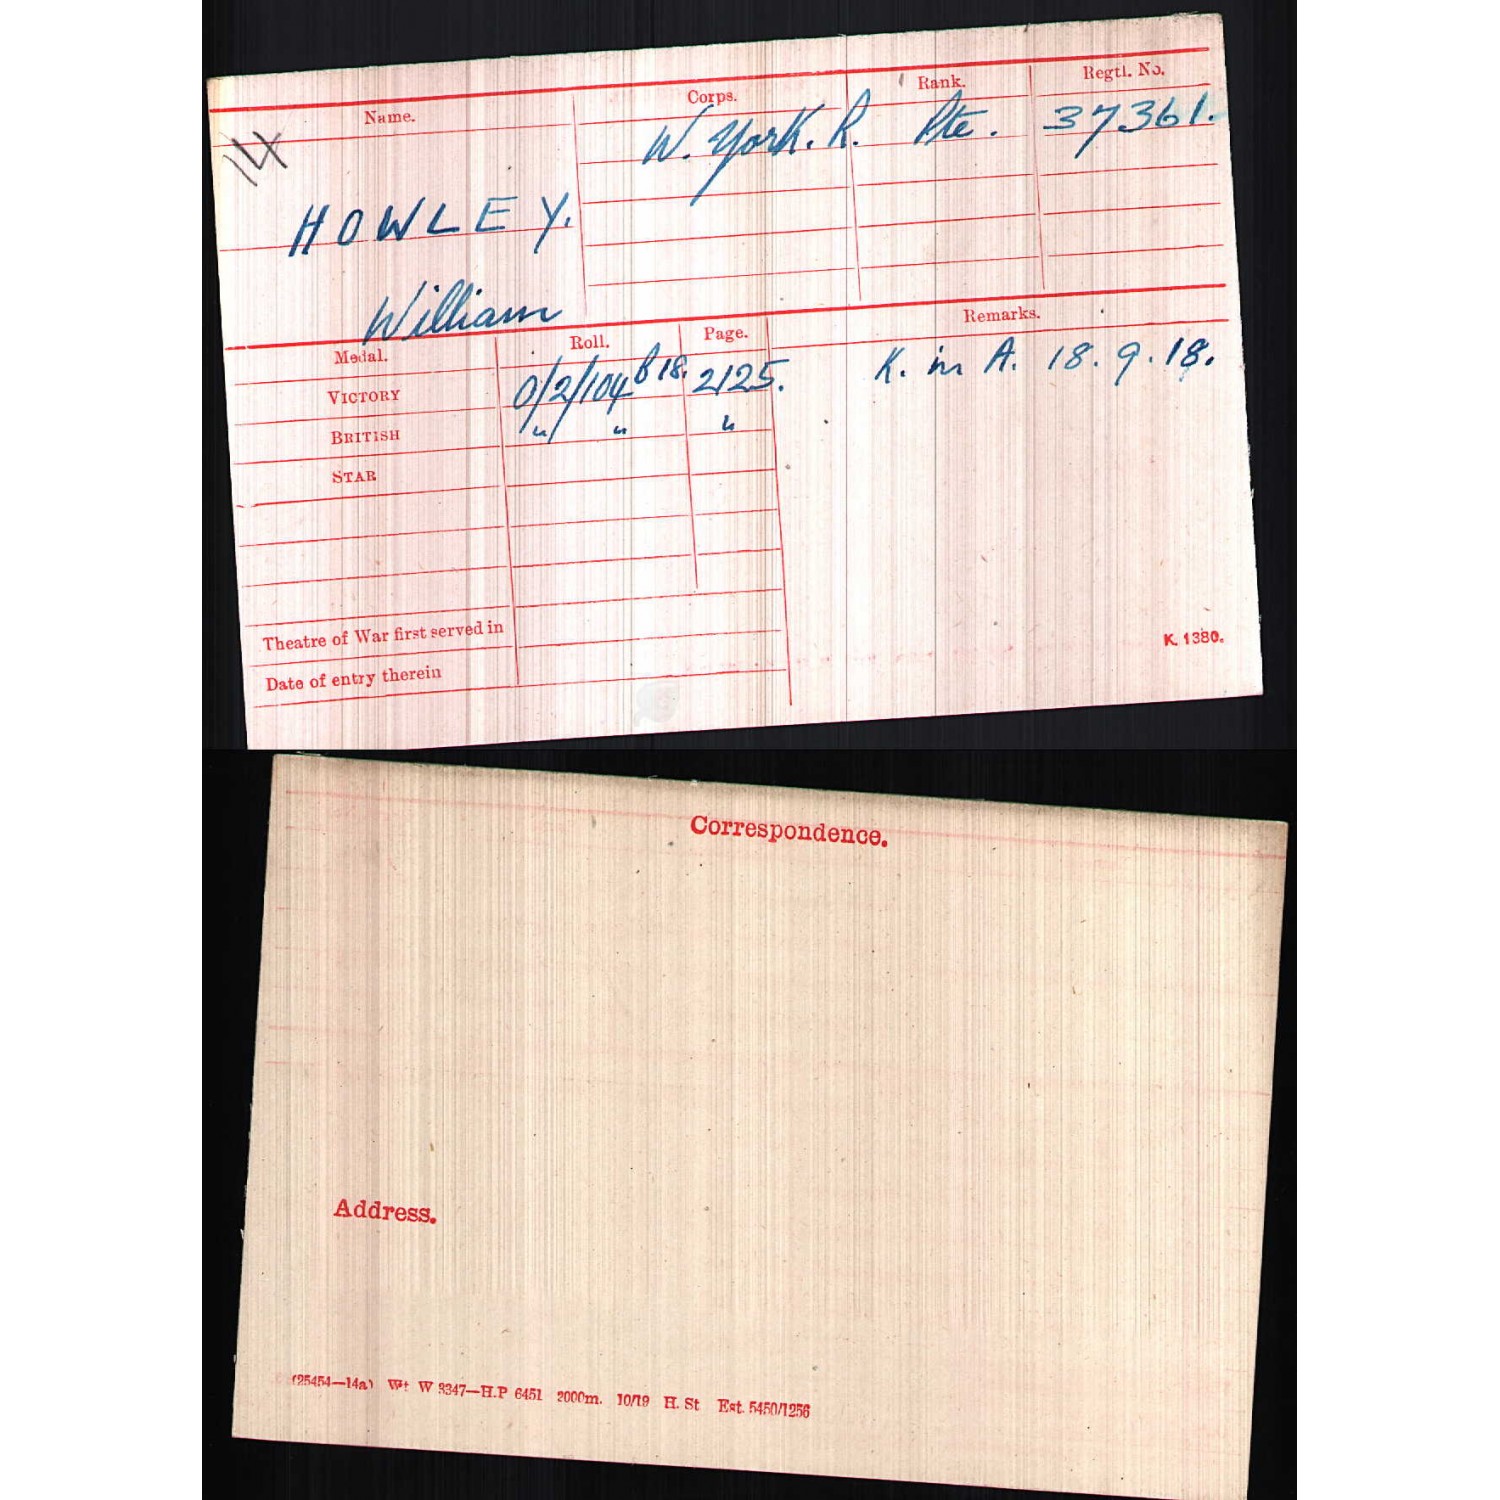 Name. Corps. Rank. Regtl. No.
W. York. R. Pte. 37361.
14
HOWLEY.
William
Medal. Roll. Page. Remarks.
VICTORY O/2/104 B18. 2125. K. in A. 18.9.18.
BRITISH " " "
STAR
Theatre of War first served in
Date of entry therein
K. 1380.
Correspondence.
Address.
(25454—14a) Wt W 3347—H.P 6451 2000m. 10/19 H. St Est. 5450/1256